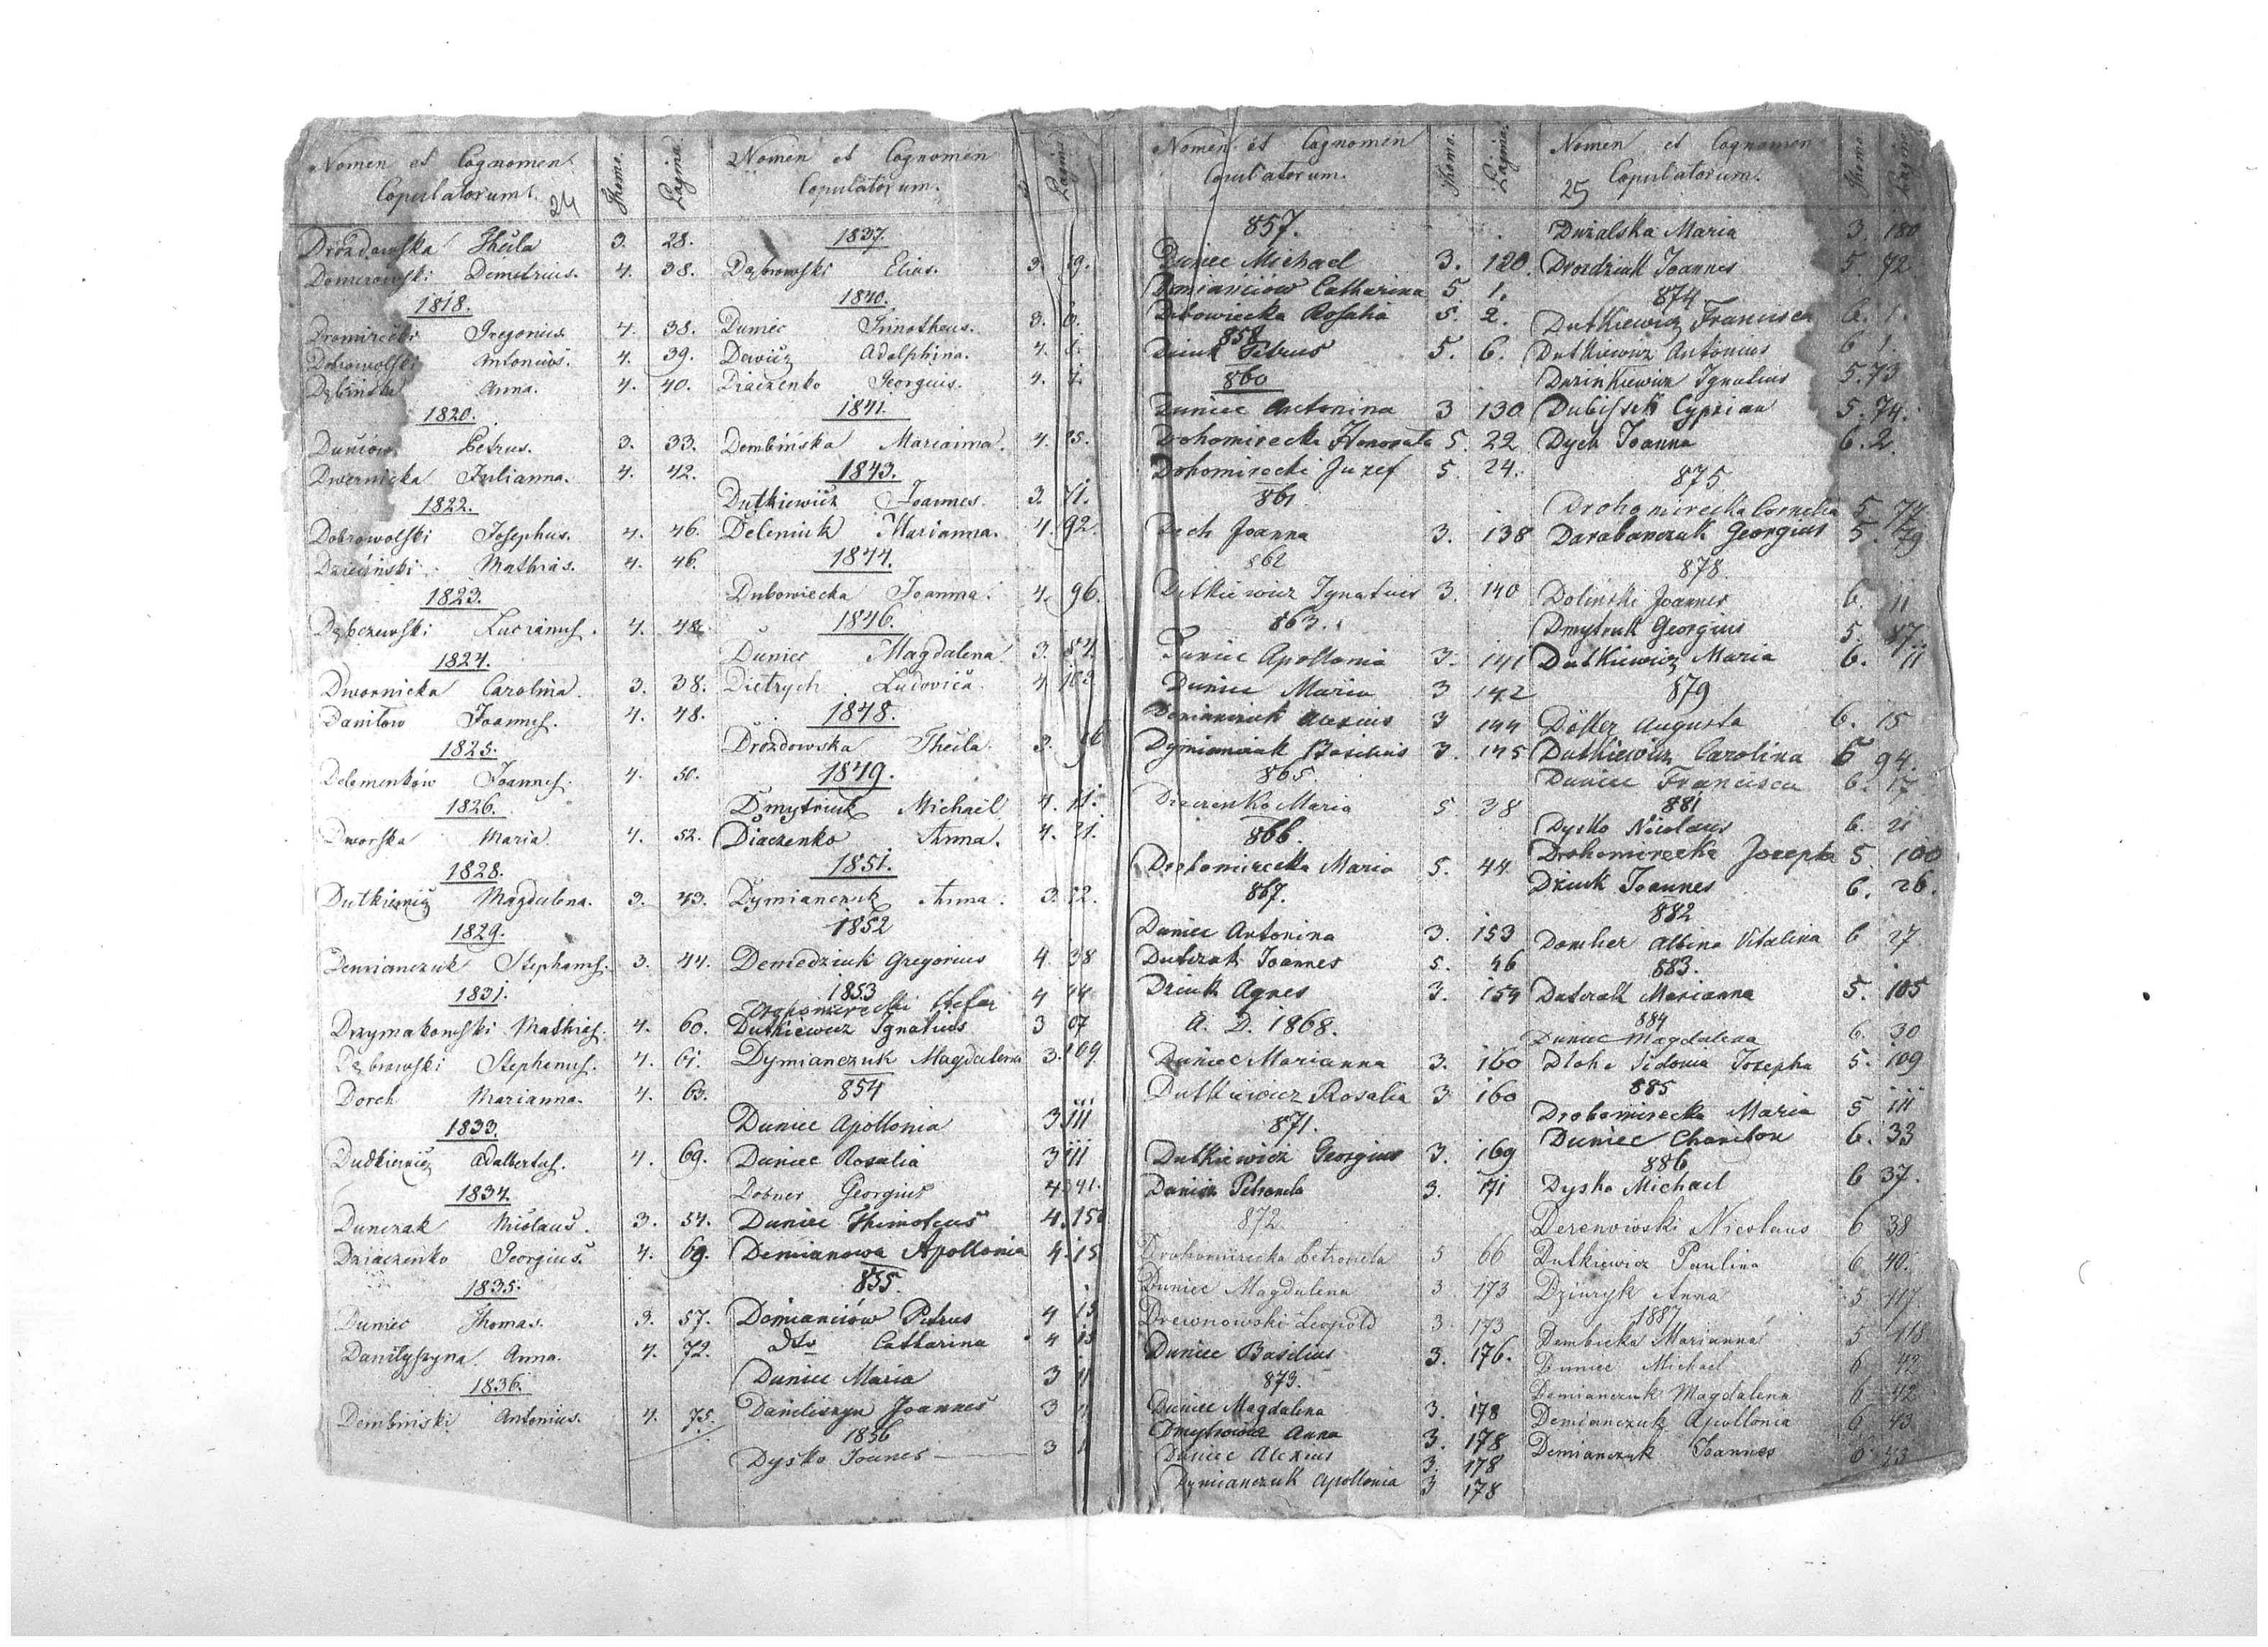 Nomen et Cognomen
Copulatorum.
24
Thomo.
Pagina.
Drozdowska Thecla 3. 28.
Demetrius. 4. 38.
1818.
Gregorius. 4. 38.
Dobrowolski Antonius. 4. 39.
Dębińska Anna. 4. 40.
1820.
Petrus. 3. 33.
Dwernicka Julianna. 4. 42.
1822.
Dobrowolski Josephus. 4. 46.
Mathias. 4. 46.
1823.
Lucianus. 4. 48.
1824.
Dwornicka Carolina. 3. 38.
Daniłow Joannes. 4. 48.
1825.
Joannes. 4. 50.
1826.
Dworska Maria 4. 52.
1828.
Dutkiewicz Magdalena. 3. 43.
1829.
Demianczuk Stephanus. 3. 44.
1831.
Drzymakowski Mathias. 4. 60.
Dębrowski Stephanus. 4. 61.
Dorch Marianna. 4. 63.
1833.
Dudkiewicz Adalbertus. 4. 69.
1834.
Dunczak Nicolaus. 3. 54.
Dziaczenko Georgius. 4. 69.
1835.
Duniec Thomas. 3. 57.
Daniłyszyna Anna. 4. 72.
1836.
Dembiński Antonius. 4. 75.
Nomen et Cognomen
Copulatorum.
Pagina
1837.
Dąbrowski Elias. 3.
1840.
Duniec Timotheus. 3.
Adolphina. 4.
Diaczenko Georgius. 4.
1841.
Dembińska Marianna. 4.
1843.
Dutkiewicz Joannes. 3. 71.
Deleniuk Marianna. 4. 92.
1844.
Dubowiecka Joanna. 4. 96.
1846.
Duniec Magdalena. 3. 84.
Dietrych Ludovica. 4.
1848.
Drozdowska Thecla. 3.
1849.
Dmytriuk Michaël 4.
Diaczenko Anna. 4.
1851.
Dymianczuk Anna. 3.
1852
Demedziuk Gregorius 4 38
1853
Drohomirecki 4
Dutkiewicz Ignatius 3
Dymianczuk Magdalena 3. 109
854
Duniec Apollonia 3 111
Duniec Rosalia 3 111
Dobner Georgius 4
Duniec Thimoteus 4.
Demianowa Apollonia 4.
855.
Demianciów Petrus 4
Dto Catharina 4
Duniec Maria 3
Daniliszyn Joannes 3
1856
Dysko Ioannes 3
Nomen et Cognomen
Copulatorum.
Thomo.
Pagina.
857.
Duniec Michael 3. 120.
Demianciow Catharina 5 1.
Rosalia 5. 2.
858
Dziuk Petrus 5. 6.
860
Duniec Antonina 3 130
Drohomirecka Honorata 5. 22
Drohomirecki Juzef 5. 24.
861
Joanna 3. 138
862
Dutkiewicz Ignatius 3. 140
863.
Duniec Apollonia 3. 141
Duniec Maria 3 142
Demianczuk Alexius 3 144
Dymianczuk Basilius 3. 145
865.
Maria 5 38
866.
Drohomirecka Maria 5. 44
867.
Duniec Antonina 3. 153
Joannes 5. 46
Dziuk Agnes 3. 154
A. D. 1868.
Duniec Marianna 3. 160
Dutkiewicz Rosalia 3 160
871.
Dutkiewicz Georgius 3. 169
Petronela 3. 171
872
Drohomirecka Petronela 5 66
Duniec Magdalena 3 173
Drewnowski Leopold 3. 173
Duniec Basilius 3. 176.
873.
Duniec Magdalena 3. 178
Anna 3. 178
Duniec Alexius 3. 178
Dymianczuk Apollonia 3 178
Nomen et Cognomen
Copulatorum.
25
Thomo.
Pagina
Maria 3. 180
Drozdziuk Joannes 5. 72
874
Dutkiewicz Francisca 6. 1.
Dutkiewicz Antonius 6 1.
Ignatius 5. 73
Cyprian 5. 74.
Dych Joanna 6. 2.
875
Drohomirecka Cornelia 5. 74
Darabanczuk Georgius 5. 79
878.
Dolinski Joannes 6. 11
Dmytruk Georgius 5. 87.
Dutkiewicz Maria 6. 11
879
Augusta 6. 15
Dutkiewicz Carolina 5 94.
Duniec Francisca 6. 17
881
Dysko Nicolaus 6. 21
Drohomirecka Josepha 5. 100
Dziuk Joannes 6. 26.
882
Albina Vitalina 6 27
883.
Marianna 5. 105
884
Duniec Magdalena 6. 30
Sidonia Josepha 5. 109
885
Drohomirecka Maria 5 111
Duniec Chariton 6. 33
886
Dysko Michael 6 37.
Nicolaus 6 38
Dutkiewicz Paulina 6 40.
Dziuryk Anna 5 117
1887
Dembicka Marianna 5 118
Duniec Michael 6 42
Demianczuk Magdalena 6 42
Demianczuk Apollonia 6 43
Demianczuk Joannes 6 43